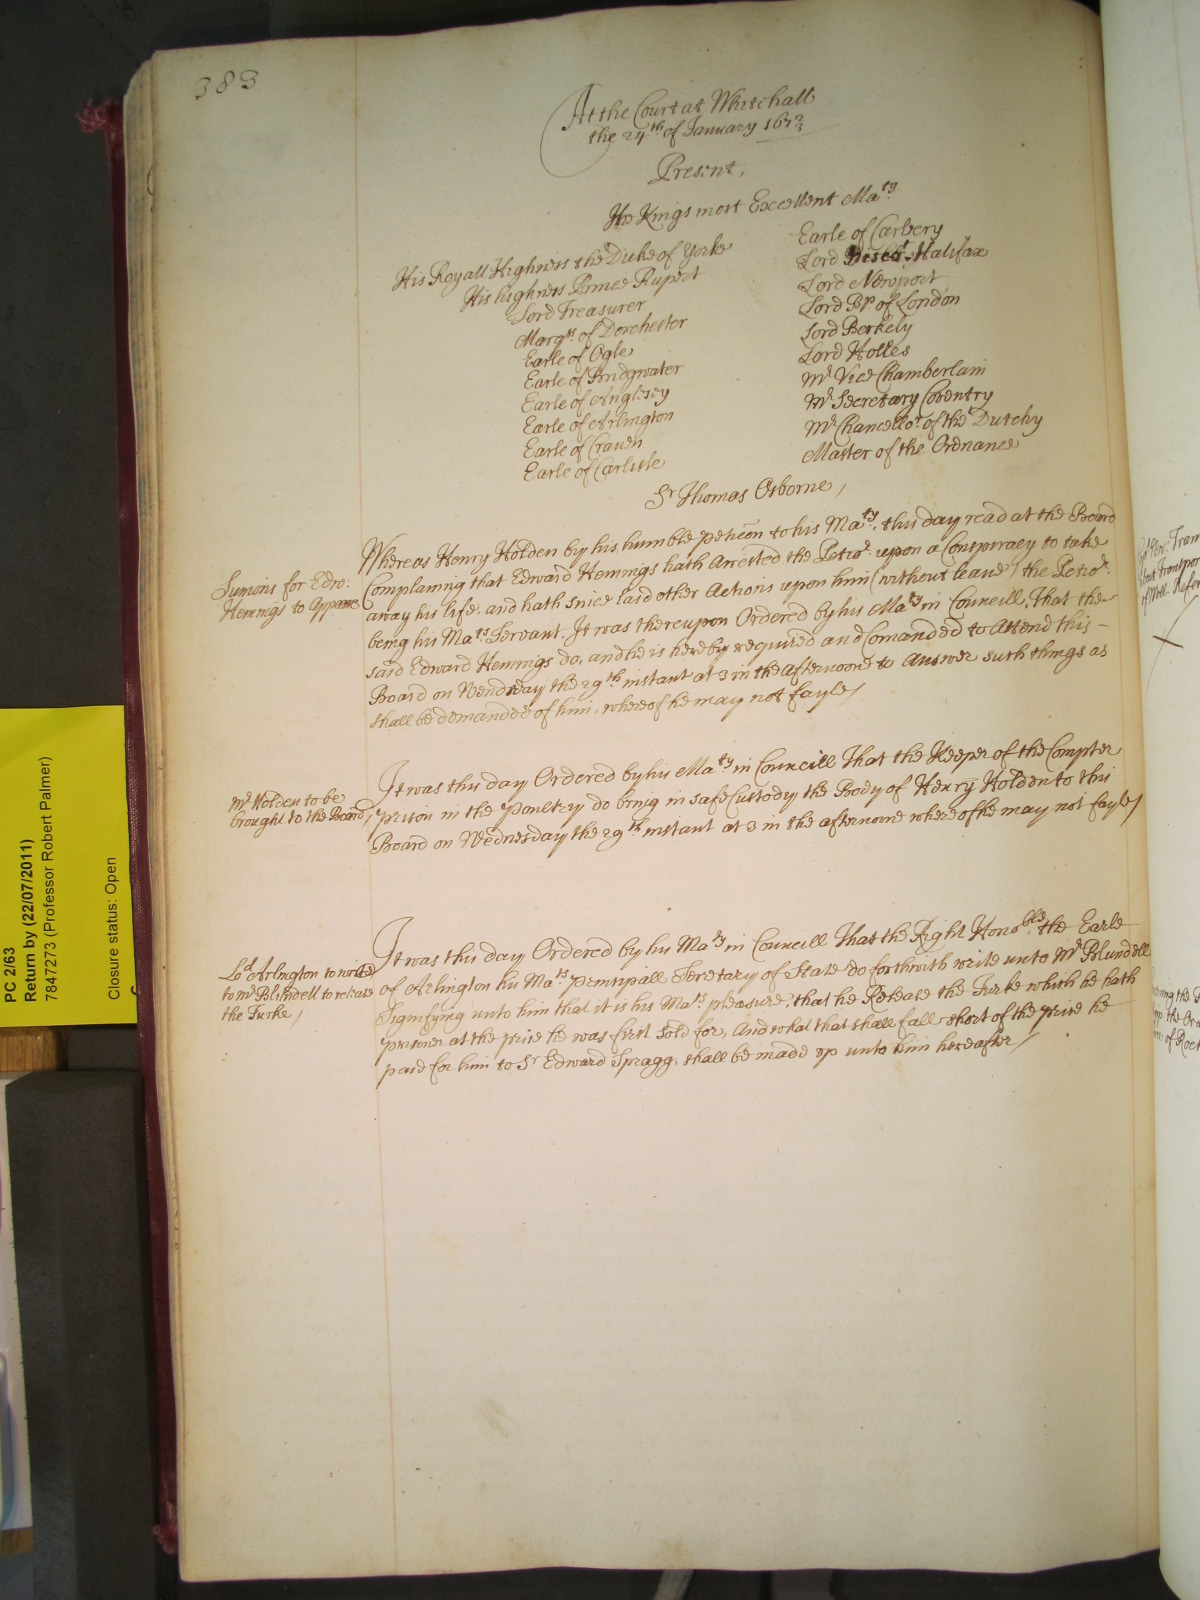 383
At the Court at Whitehall
the 24th of January 1672/3
Present,
The Kings most Excellent Ma:ty
His Royall Highness the Duke of Yorke
His highness Prince Rupert
Lord Treasurer
Marqs of Dorchester
Earle of Ogle
Earle of Bridgwater
Earle of Anglesey
Earle of Arlington
Earle of Craven
Earle of Carlisle
Earle of Carbery
Lord Viscot Halifax
Lord Newport
Lord Bp of London
Lord Berkely
Lord Holles
Mr Vice Chamberlain
Mr Secretary Coventry
Mr Chancellor of the Dutchy
Master of the Ordnance
Sr Thomas Osborne /
Sumons for Edw:
Hemings to Appeare
Whereas Henry Holden by his humble peticon to his Ma:ty, this day read at the Board
Complaining that Edward Hemmings hath Arrested the Petior. upon a Conspiracy to take
away his life, and hath since laid other Actions upon him (without leave) the Petior.
being his Mats. Servant. It was thereupon Ordered by his Maty in Councill, That the
said Edward Hemmings do, and he is hereby required and Comanded to Attend this -
Board on Wendsday the 29th instant at 3 in the afternoone to Answer such things as
shall be demanded of him, whereof he may not fayle /
Mr Holden to be
brought to the Board /
It was this day Ordered by his Ma:ty in Councill That the Keeper of the Compter
prison in the Poultry do bring in safe Custody the Body of Henry Holden to this
Board on Wednesday the 29th instant at 3 in the afternoone whereof he may not fayle /
Lod Arlington to write
to Mr Blundell to release
the Turke /
It was this day Ordered by his Maty in Councill That the Right Honoble the Earle
of Arlington his Mats principall Secretary of State do forthwith write unto Mr Blundell
Signifying unto him that it is his Mats pleasure, that he Release the Turke which he hath
prisoner at the price he was first sold for, And what that shall fall short of the price he
paid for him to Sr Edward Spragg, shall be made up unto him hereafter /
PC 2/63
Return by (22/07/2011)
7847273 (Professor Robert Palmer)
Closure status: Open